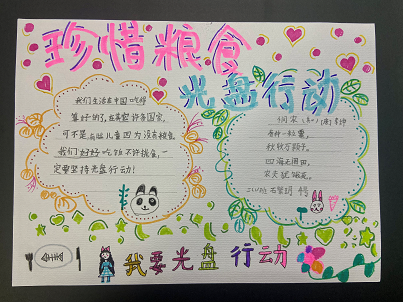 珍惜粮食
光盘行动
我们生活在中国吃得
算好的了,在某些许多国家,
可不是有些儿童四方没有粮食
我们好好吃饭不许挑食,一
定要坚持光盘行动!
悯农(其一)(唐)李绅
春种一粒粟,
秋收万颗子。
四海无闲田,
农夫犹饿死。
我要光盘行动